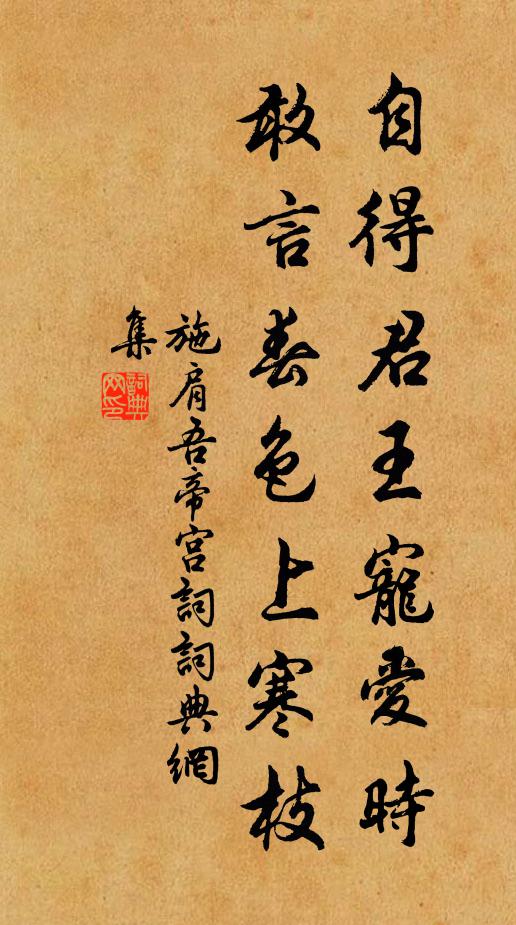 自得君王寵愛時
敢言春色上寒枝
施肩吾帝宫詞詞典網
集
詞典
网印